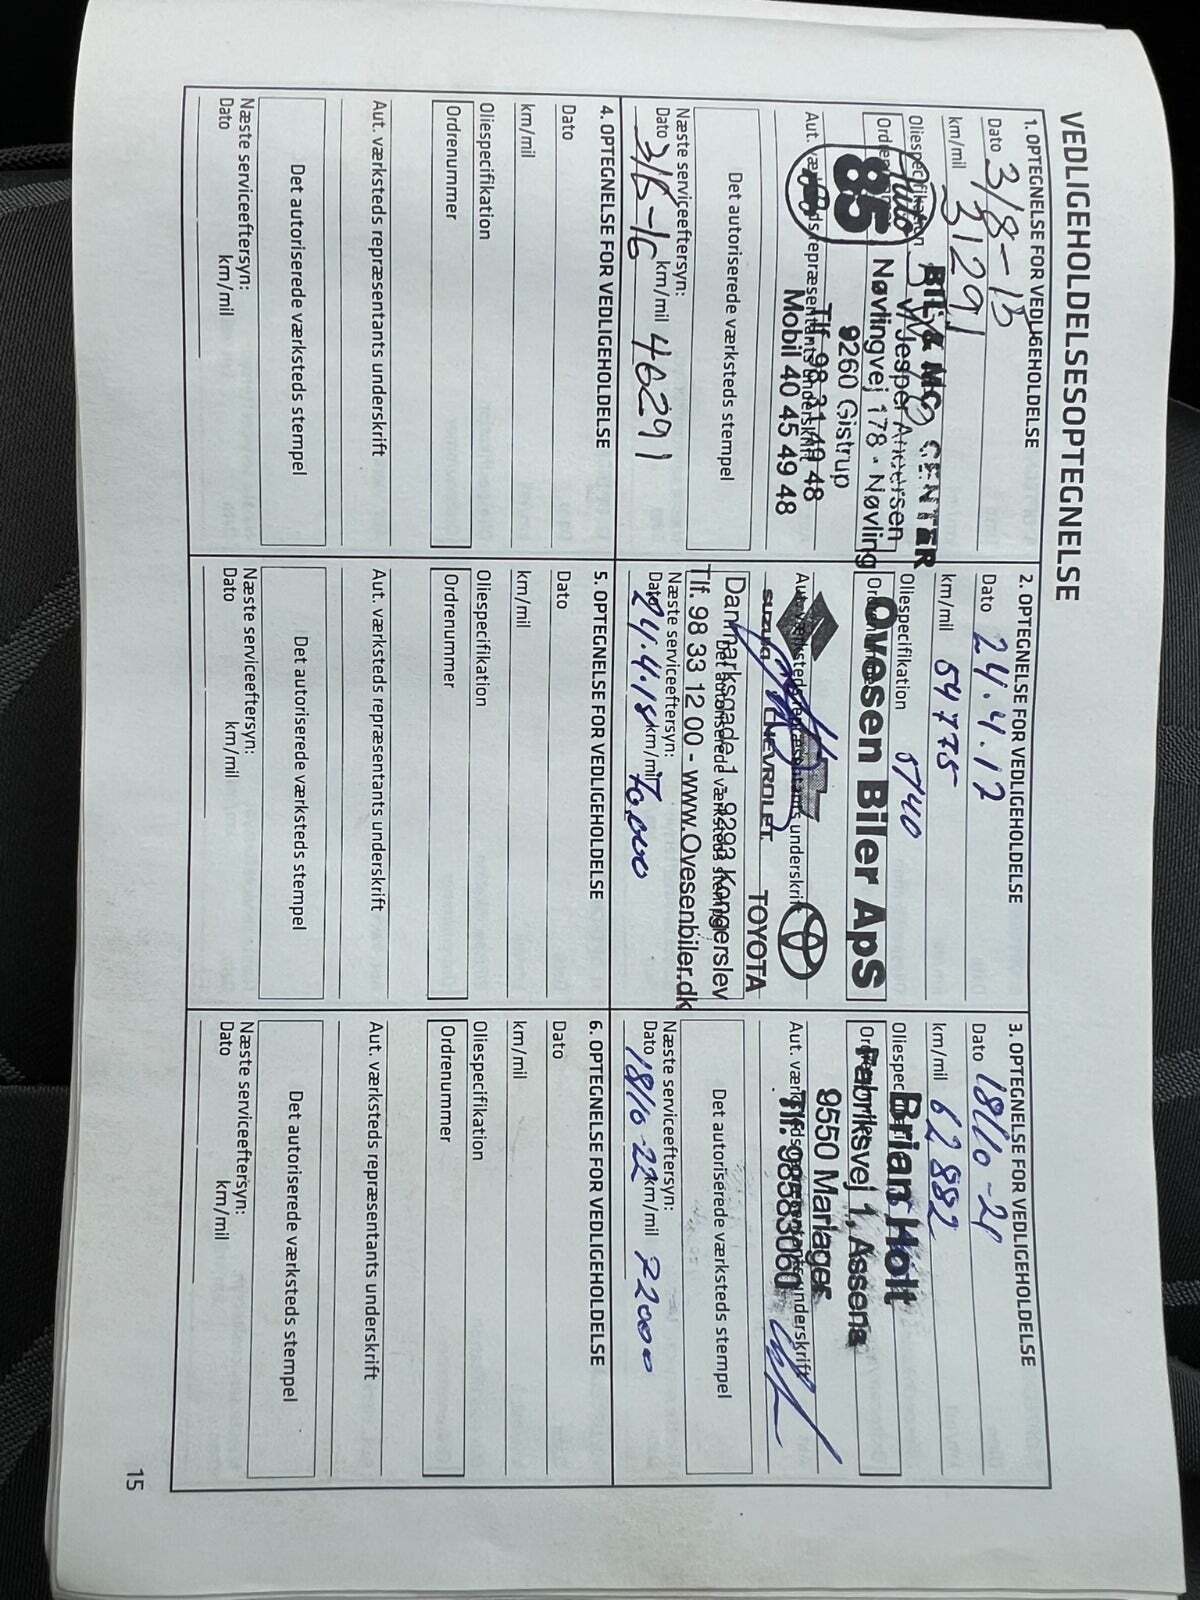 VEDLIGEHOLDELSESOPTEGNELSE
1. OPTEGNELSE FOR VEDLIGEHOLDELSE
Dato 3/8-15
km/mil 31291
Oliespecifikation
BIL & MC CENTER
Auto
85
v/ Jesper Andersen
Nøvlingvej 178 - Nøvling
9260 Gistrup
Tlf. 98 31 49 48
Mobil 40 45 49 48
Aut. værksteds repræsentants underskrift
Det autoriserede værksteds stempel
Næste serviceeftersyn:
Dato 3/6-16 km/mil 46291
2. OPTEGNELSE FOR VEDLIGEHOLDELSE
Dato 24.4.17
km/mil 54775
Oliespecifikation 5W40
Ovesen Biler ApS
Aut. værksteds repræsentants underskrift
SUZUKI CHEVROLET TOYOTA
Det autoriserede værksteds stempel
Danmarksgade 1 - 9293 Kongerslev
Tlf. 98 33 12 00 - www.Ovesenbiler.dk
Næste serviceeftersyn:
Dato 24.4.18 km/mil 70,000
3. OPTEGNELSE FOR VEDLIGEHOLDELSE
Dato 18/10-21
km/mil 62882
Brian Holt
Fabriksvej 1, Assens
9550 Mariager
Tlf. 98583060
Aut. værksteds repræsentants underskrift
Det autoriserede værksteds stempel
Næste serviceeftersyn:
Dato 18/10-22 km/mil 72000
4. OPTEGNELSE FOR VEDLIGEHOLDELSE
Dato
km/mil
Oliespecifikation
Ordrenummer
Aut. værksteds repræsentants underskrift
Det autoriserede værksteds stempel
Næste serviceeftersyn:
Dato km/mil
5. OPTEGNELSE FOR VEDLIGEHOLDELSE
Dato
km/mil
Oliespecifikation
Ordrenummer
Aut. værksteds repræsentants underskrift
Det autoriserede værksteds stempel
Næste serviceeftersyn:
Dato km/mil
6. OPTEGNELSE FOR VEDLIGEHOLDELSE
Dato
km/mil
Oliespecifikation
Ordrenummer
Aut. værksteds repræsentants underskrift
Det autoriserede værksteds stempel
Næste serviceeftersyn:
Dato km/mil
15